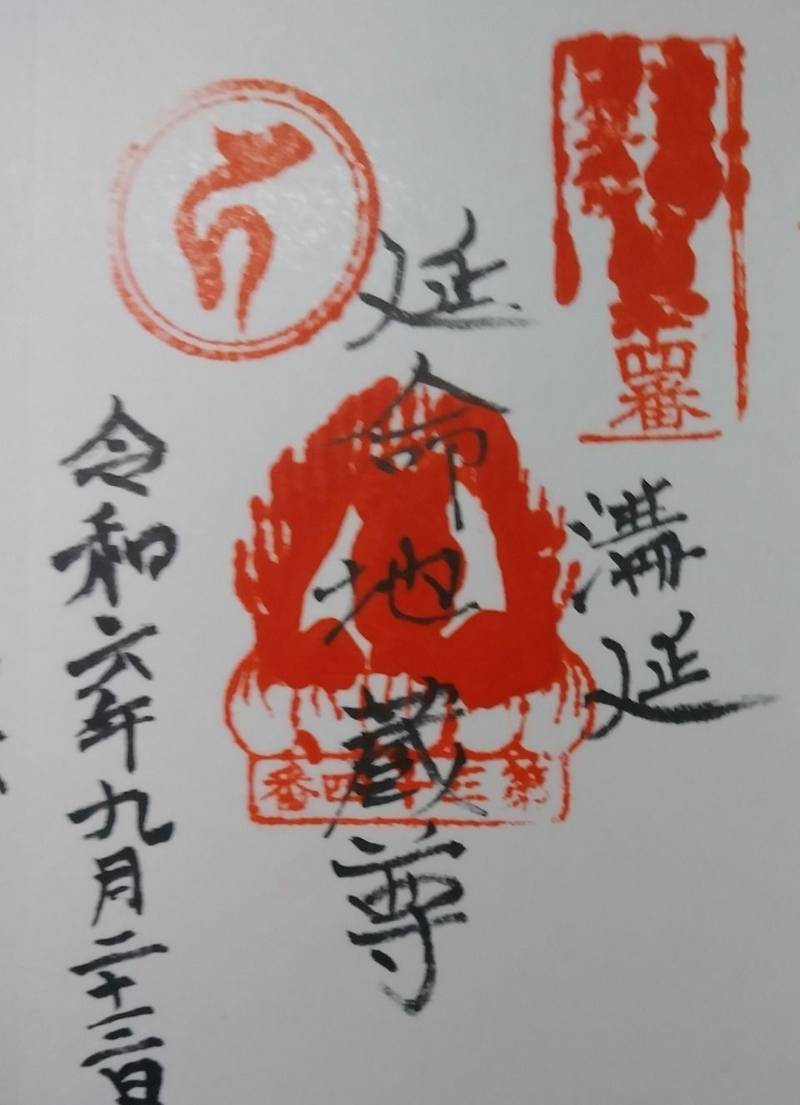 四番
溝延
延命地蔵尊
第三十四番
令和六年九月二十三日